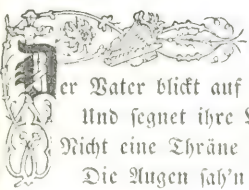 Der Vater blickt auf
Und segnet ihre
Nicht eine Thräne
Die Augen sah'n